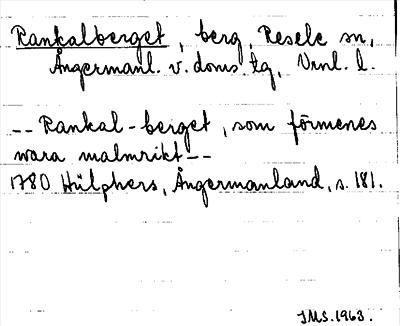 Rankalberget, berg, Resele sn,
Ångermanl. v. doms. tg, Vrnl. l.
-- Rankal-berget, som förmenes
wara malmrikt --
1780 Hülphers, Ångermanland, s. 181.
JMS. 1963.